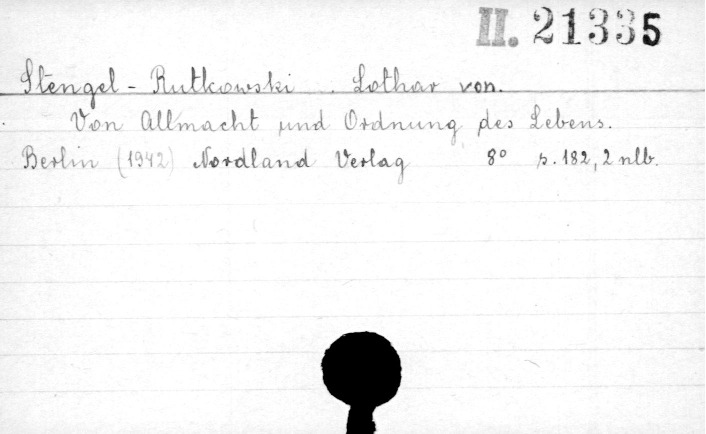 II. 21335
Stengel-Rutkowski. Lothar von.
Von Allmacht und Ordnung des Lebens.
Berlin (1942) Nordland Verlag 8° p. 182, 2 nlb.